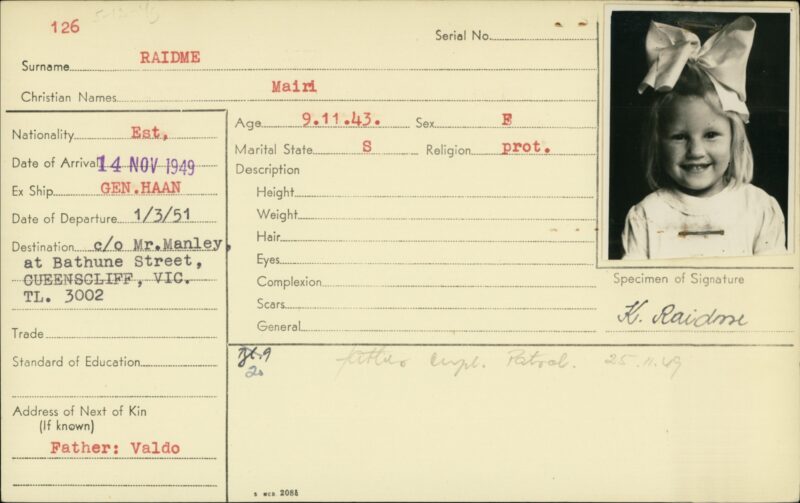 126
5-12-49
Serial No.
Surname RAIDME
Christian Names Mairi
Nationality Est,
Date of Arrival 14 NOV 1949
Ex Ship GEN.HAAN
Date of Departure 1/3/51
Destination c/o Mr.Manley,
at Bathune Street,
QUEENSCLIFF, VIC.
TL. 3002
Trade
Standard of Education
Address of Next of Kin
(If known)
Father: Valdo
Age 9.11.43. Sex F
Marital State S Religion prot.
Description
Height
Weight
Hair
Eyes
Complexion
Scars
General
Specimen of Signature
K. Raidme
20
25.11.49
S MCB 2085